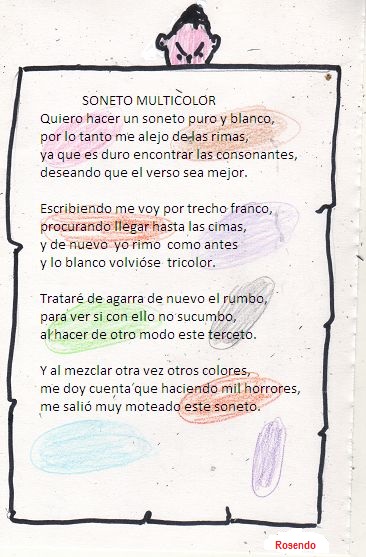 SONETO MULTICOLOR
Quiero hacer un soneto puro y blanco,
por lo tanto me alejo de las rimas,
ya que es duro encontrar las consonantes,
deseando que el verso sea mejor.
Escribiendo me voy por trecho franco,
procurando llegar hasta las cimas,
y de nuevo yo rimo como antes
y lo blanco volvióse tricolor.
Trataré de agarra de nuevo el rumbo,
para ver si con ello no sucumbo,
al hacer de otro modo este terceto.
Y al mezclar otra vez otros colores,
me doy cuenta que haciendo mil horrores,
me salió muy moteado este soneto.
Rosendo